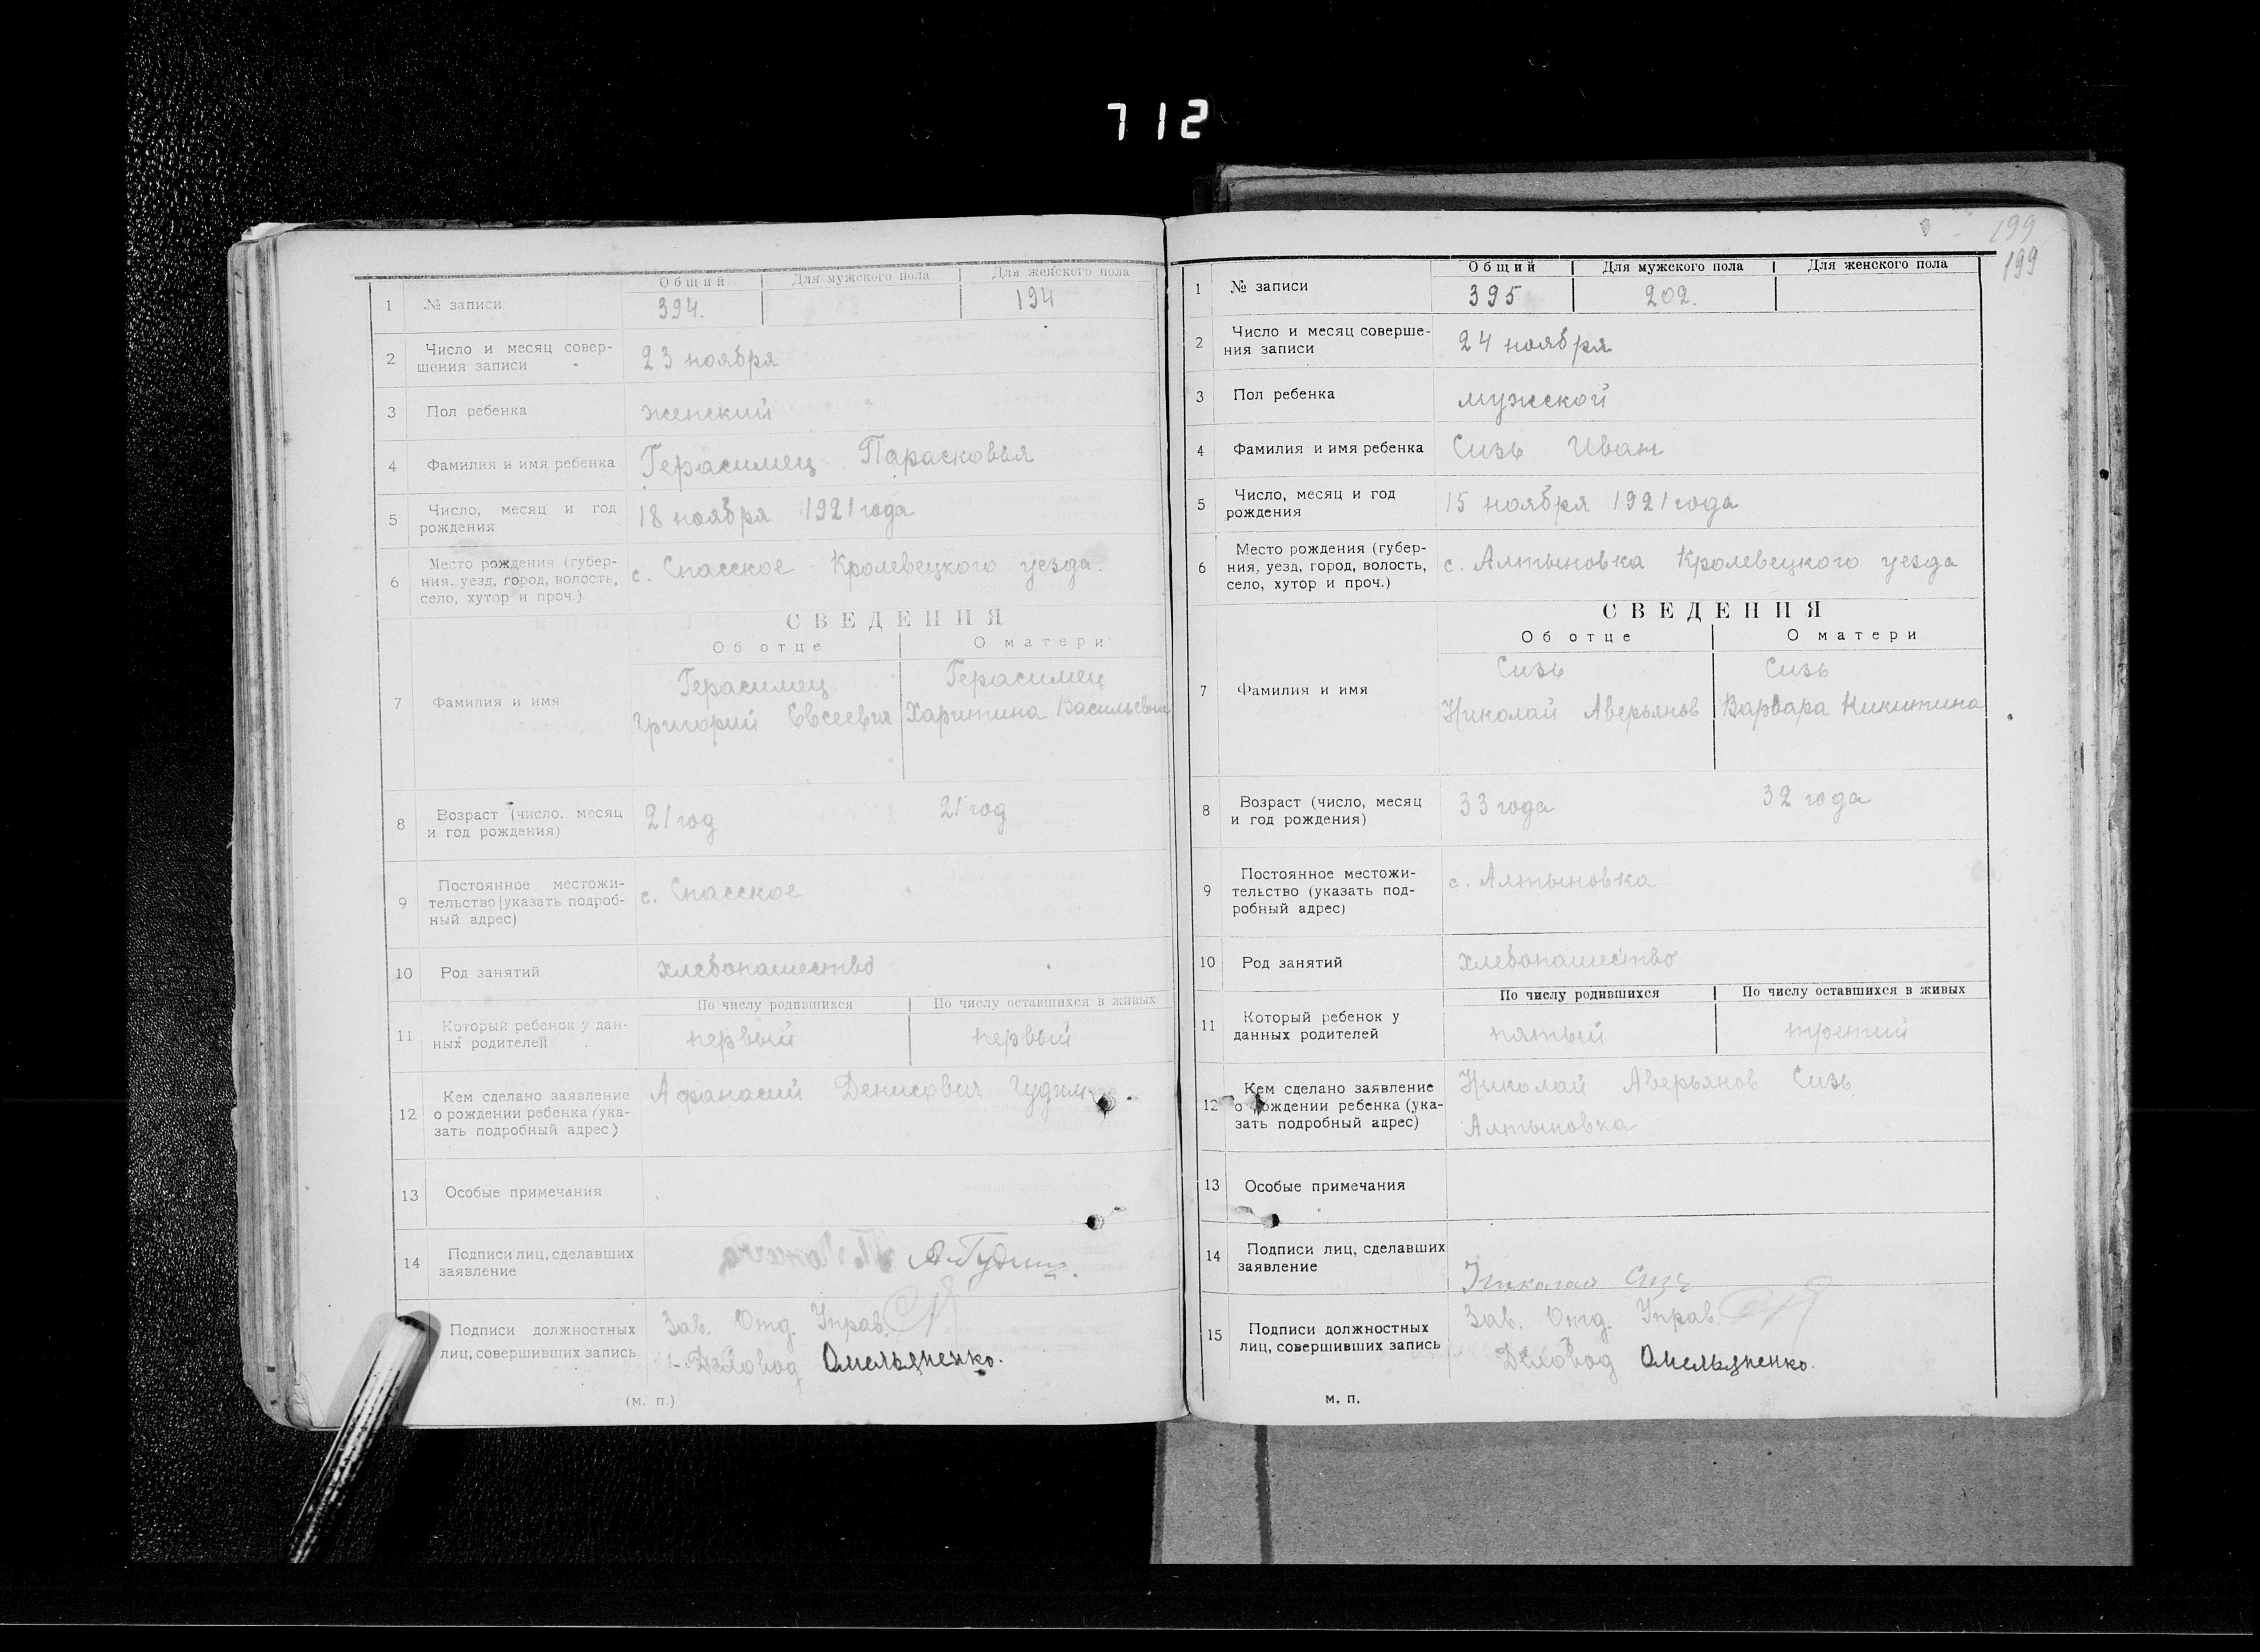 712
Общий Для мужского пола Для женского пола
1 № записи 394. 194
2 Число и месяц совер-
шения записи 23 ноября
3 Пол ребенка женский
4 Фамилия и имя ребенка Герасимец Парасковья
5 Число, месяц и год
рождения 18 ноября 1921 года
6 Место рождения (губер-
ния, уезд, город, волость,
село, хутор и проч.) с. Спасское Кролевецкого уезда.
СВЕДЕНИЯ
Об отце О матери
7 Фамилия и имя
Герасимец Герасимец
Григорий Евсеевич Харитина Васильевна
8 Возраст (число, месяц
и год рождения) 21 год 21 год
9 Постоянное местожи-
тельство (указать подроб-
ный адрес) с. Спасское
10 Род занятий хлебопашество
По числу родившихся По числу оставшихся в живых
11 Который ребенок у дан-
ных родителей первый первый
12 Кем сделано заявление
о рождении ребенка (ука-
зать подробный адрес) Афанасий Денисович
13 Особые примечания
14 Подписи лиц, сделавших
заявление
Подписи должностных
лиц, совершивших запись
Зав. Отд. Управ.
Деловод Омельяненко.
(м. п.)
199
199
Общий Для мужского пола Для женского пола
1 № записи 395 202.
2 Число и месяц соверше-
ния записи 24 ноября
3 Пол ребенка мужской
4 Фамилия и имя ребенка Сизь Иван
5 Число, месяц и год
рождения 15 ноября 1921 года
6 Место рождения (губер-
ния, уезд, город, волость,
село, хутор и проч.) с. Алтыновка Кролевецкого уезда
СВЕДЕНИЯ
Об отце О матери
7 Фамилия и имя
Сизь Сизь
Николай Аверьянов Варвара Никитина
8 Возраст (число, месяц
и год рождения) 33 года 32 года
9 Постоянное местожи-
тельство (указать под-
робный адрес) с. Алтыновка
10 Род занятий хлебопашество
По числу родившихся По числу оставшихся в живых
11 Который ребенок у
данных родителей пятый третий
12 Кем сделано заявление
о рождении ребенка (ука-
зать подробный адрес)
Николай Аверьянов Сизь
Алтыновка
13 Особые примечания
14 Подписи лиц, сделавших
заявление Николай Сизь
15 Подписи должностных
лиц, совершивших запись
Зав. Отд. Управ.
Деловод Омельяненко.
м. п.